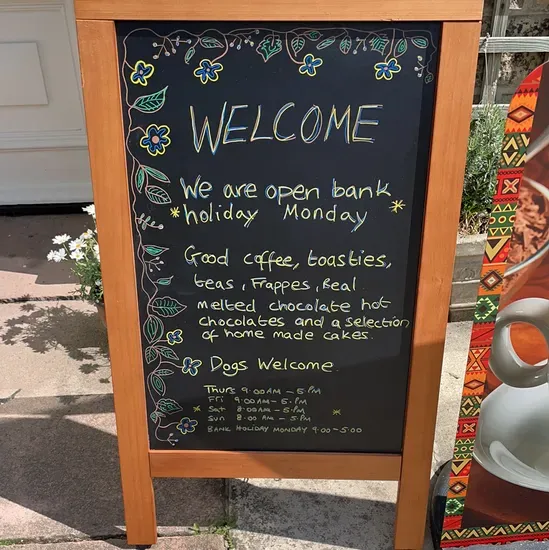 WELCOME
We are open bank
* holiday Monday *
Good coffee, toasties,
teas, Frappes, Real
melted chocolate hot
chocolates and a selection
of home made cakes.
Dogs Welcome
Thurs 9:00AM - 5.PM
Fri 9:00AM - 5.PM
* Sat 8:00AM - 5.PM *
Sun 8:00 AM - 5.PM
BANK HOLIDAY MONDAY 9:00 - 5:00